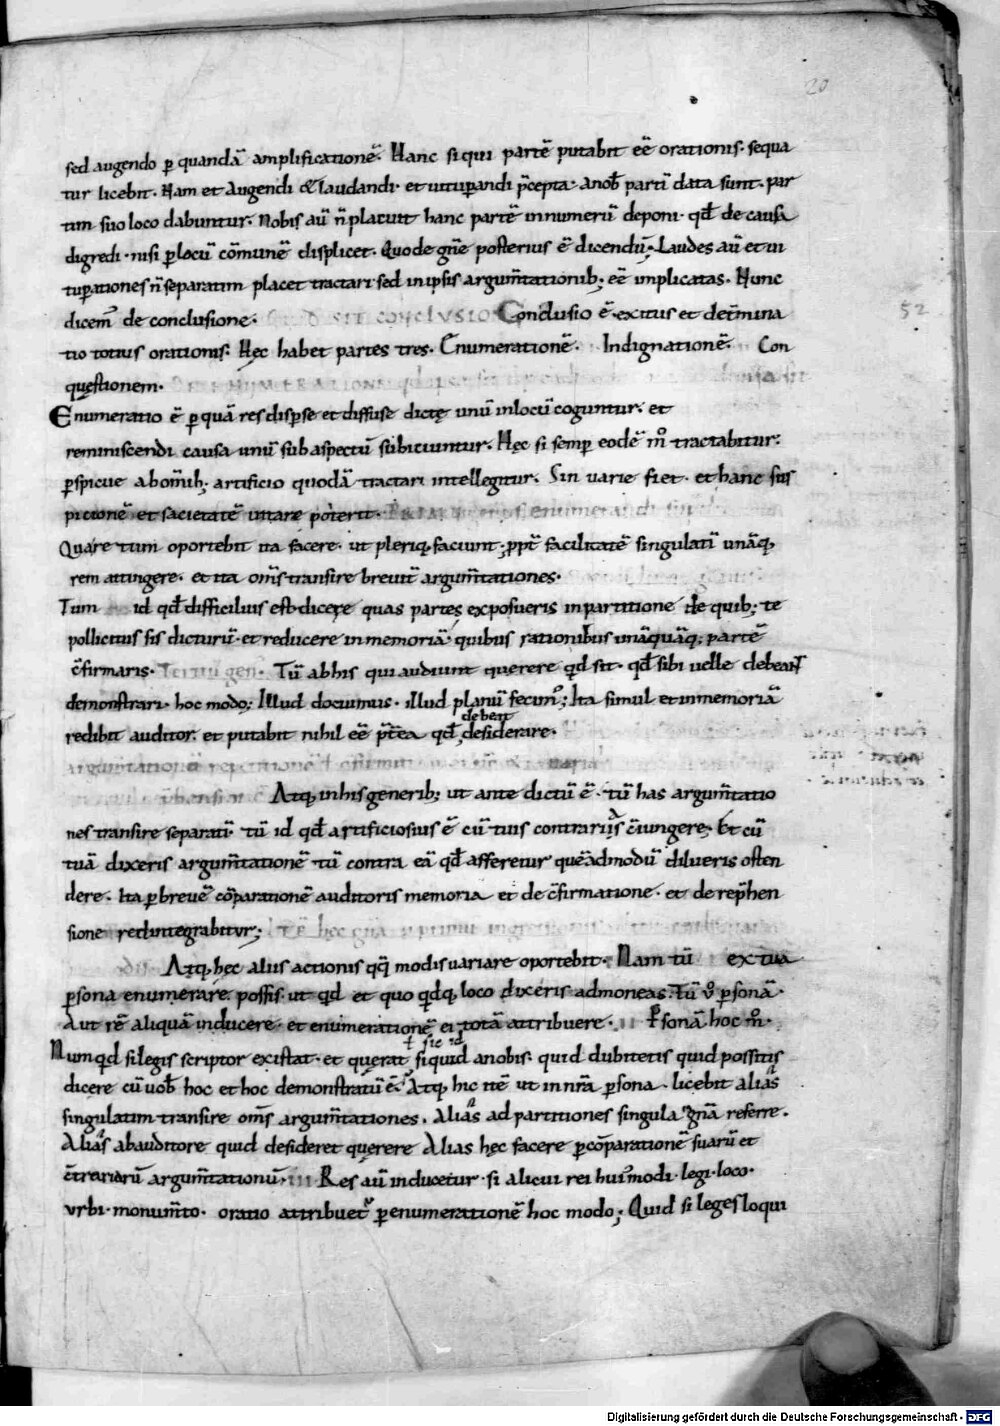 20
sed augendo ꝑ quandā amplificationē. Hanc si qui partē putabit eē orationis. sequa
tur licebit. Nam et augendi & laudandi. et uituꝑandi p̄cepta. a nob̄ partī data sunt. par
tim suo loco dabuntur. Nobis aū n̄ placuit hanc partē in numerū deponi. qd̄ de causa
digredi. nisi ꝑ locū cōmunē displicet. Quo de gn̄e posterius ē dicendū. Laudes aū et ui
tuꝑationes n̄ separatim placet tractari sed in ipsis argum̄tationib; eē implicatas. Nunc
dicem᾽ de conclusione. QVID SIT CONCLVSIO Conclusio ē. exitus et det̄mina
52
tio totius orationis. Hęc habet partes tres. Enumerationē. Indignationē. Con
quęstionem.
Enumeratio ē ꝑ quā res disꝑse et diffuse dictę unū in locū coguntur. et
reminiscendi causa unū sub aspectū subiciuntur. Hęc si semꝑ eodē m̊ tractabitur.
ꝑspicue ab om̄ib; artificio quodā tractari intellegitur. Sin uarie fiet. et hanc sus
picionē et sacietatē uitare poterit.
Quare tum oportebit ita facere. ut pleriq; faciunt. ꝓpt̄ facilitatē singulatī unāq;
rem attingere. et ita om̄s transire breuit̄ argum̄tationes.
Tum id qd̄ difficilius est dicere quas partes exposueris in partitione de quib; te
pollicitus sis dicturū. et reducere in memoriā quibus rationibus unāquāq; partē
c̄firmaris. Tū ab his qui audiunt querere qd̄ sit. qd̄ sibi uelle debeant
demonstrari. hoc modo; Illud docuimus. illud planū fecim᾽; Ita simul et in memoriā
debeat
redibit auditor. et putabit nihil eē p̄t̄ea qd̄ desiderare.
Atq; in his generib; ut ante dictū ē. tū has argum̄tatio
nes transire separatī. tū id qd̄ artificiosius ē cū tuis contrariis c̄iungere. Et cū
tuā dixeris argum̄tationē tū contra eā qd̄ afferetur quēadmodū dilueris osten
dere. Ita ꝑ breuē cōparationē auditoris memoria et de c̄firmatione. et de rep̄hen
sione redintegrabitur;
Atq; hęc aliis actionis qq̄ modis uariare oportebit. Nam tū ex tua
ꝑsona enumerare possis. ut qd et quo qdq; loco dixeris admoneas. Tū ů ꝑsonā.
Aut rē aliquā inducere. et enumerationē ei totā attribuere. Ꝑsonā hoc m̊.
ł sic id
Num qd si legis scriptor existat. et querat si quid a nobis. quid dubitetis quid possitis
dicere cū uob̄ hoc et hoc demonstratū ē. Atq; hic itē ut in nr̄a ꝑsona. licebit alias
singulatim transire om̄s argum̄tationes. Alias ad partitiones singula gn̄a referre.
Alias ab auditore quid desideret querere Alias hęc facere ꝑ cōparationē suarū et
c̄trariarū argum̄tationū. III Res aū inducetur. si alicui rei hui᾽modi. legi. loco.
urbi. monum̄to. oratio attribuet᾽ ꝑ enumerationē hoc modo; Quid si leges loqui
Digitalisierung gefördert durch die Deutsche Forschungsgemeinschaft - DFG